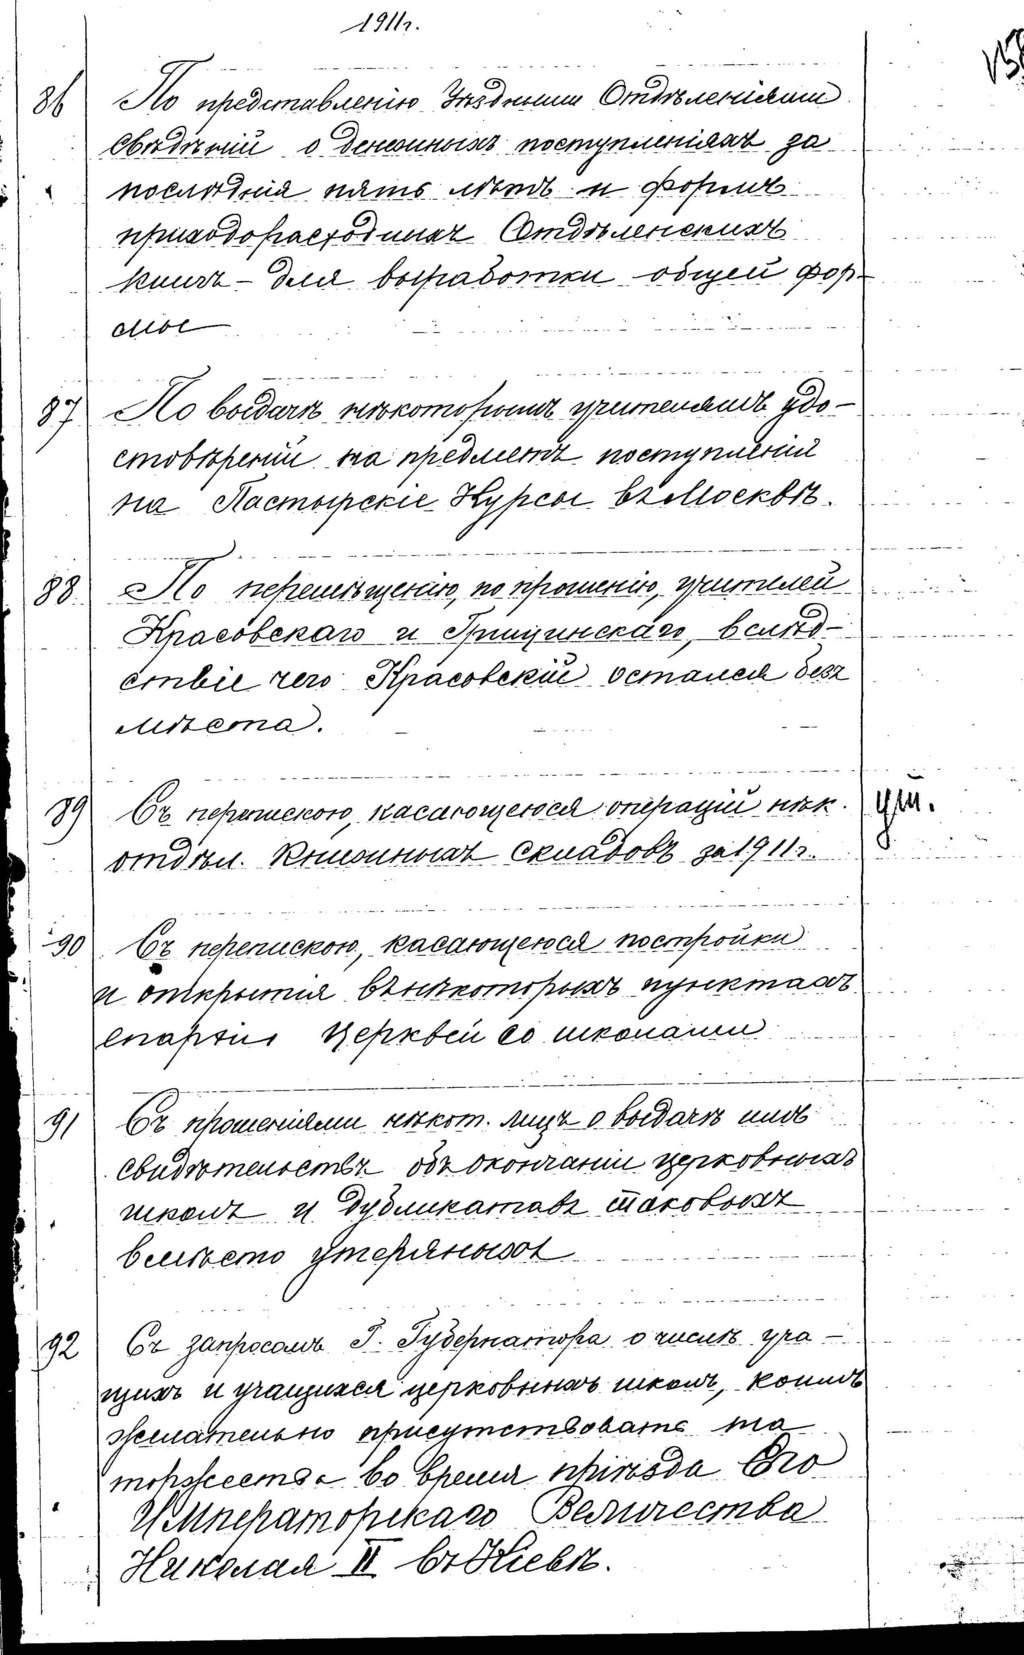 1911г.
86 По представленію Уѣздными Отдѣленіями
свѣдѣній о денежныхъ поступленіяхъ за
послѣднія пять лѣтъ и формъ
приходорасходныхъ Отдѣленскихъ
книгъ – для выработки общей фор-
мы
87 По выдачѣ нѣкоторымъ учителямъ удо-
стовѣреній на предметъ поступленія
на Пастырскіе Курсы въ Москвѣ.
88 По перемѣщенію, по прошенію, учителей
Красовскаго и Грищинскаго, вслѣд-
ствіе чего Красовскій остался безъ
мѣста.
89 Съ перепискою, касающеюся операцій нѣк.
отдѣл. книжныхъ складовъ за 1911г.
ут.
90 Съ перепискою, касающеюся постройки
и открытія въ нѣкоторыхъ пунктахъ
епархіи церквей со школами
91 Съ прошеніями нѣкот. лицъ о выдачѣ имъ
свидѣтельствъ объ окончаніи церковныхъ
школъ и дубликатовъ таковыхъ
вмѣсто утеряныхъ
92 Съ запросомъ Г. Губернатора о числѣ уча-
щихъ и учащихся церковныхъ школъ, коимъ
желательно присутствовать на
торжествѣ во время пріѣзда Его
Императорскаго Величества
Николая II въ Кіевѣ.